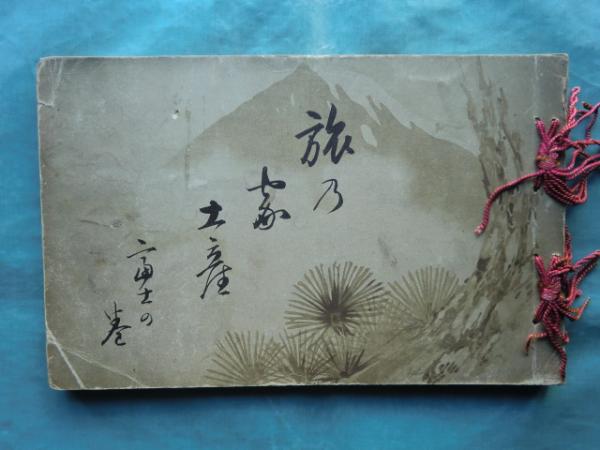 旅乃
家
土産
富士の
巻